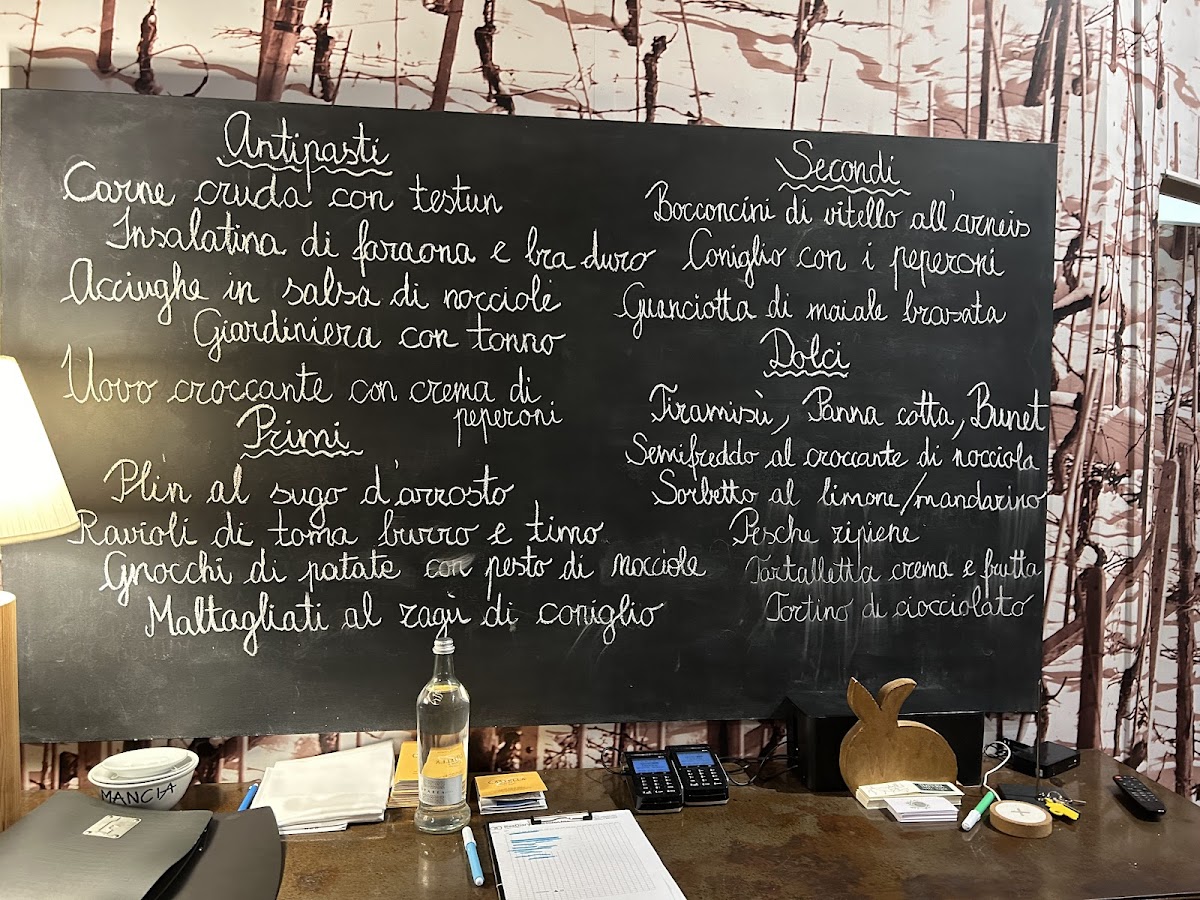 Antipasti
Carne cruda con testun
Insalatina di faraona e bra duro
Acciughe in salsa di nocciole
Giardiniera con tonno
Uovo croccante con crema di
peperoni
Primi
Plin al sugo d'arrosto
Ravioli di toma burro e timo
Gnocchi di patate con pesto di nocciole
Maltagliati al ragù di coniglio
Secondi
Bocconcini di vitello all'arneis
Coniglio con i peperoni
Guanciotta di maiale brasata
Dolci
Tiramisù, Panna cotta, Bunet
Semifreddo al croccante di nocciola
Sorbetto al limone/mandarino
Pesche ripiene
Tartalletta crema e frutta
Tortino di cioccolato
MANCIA